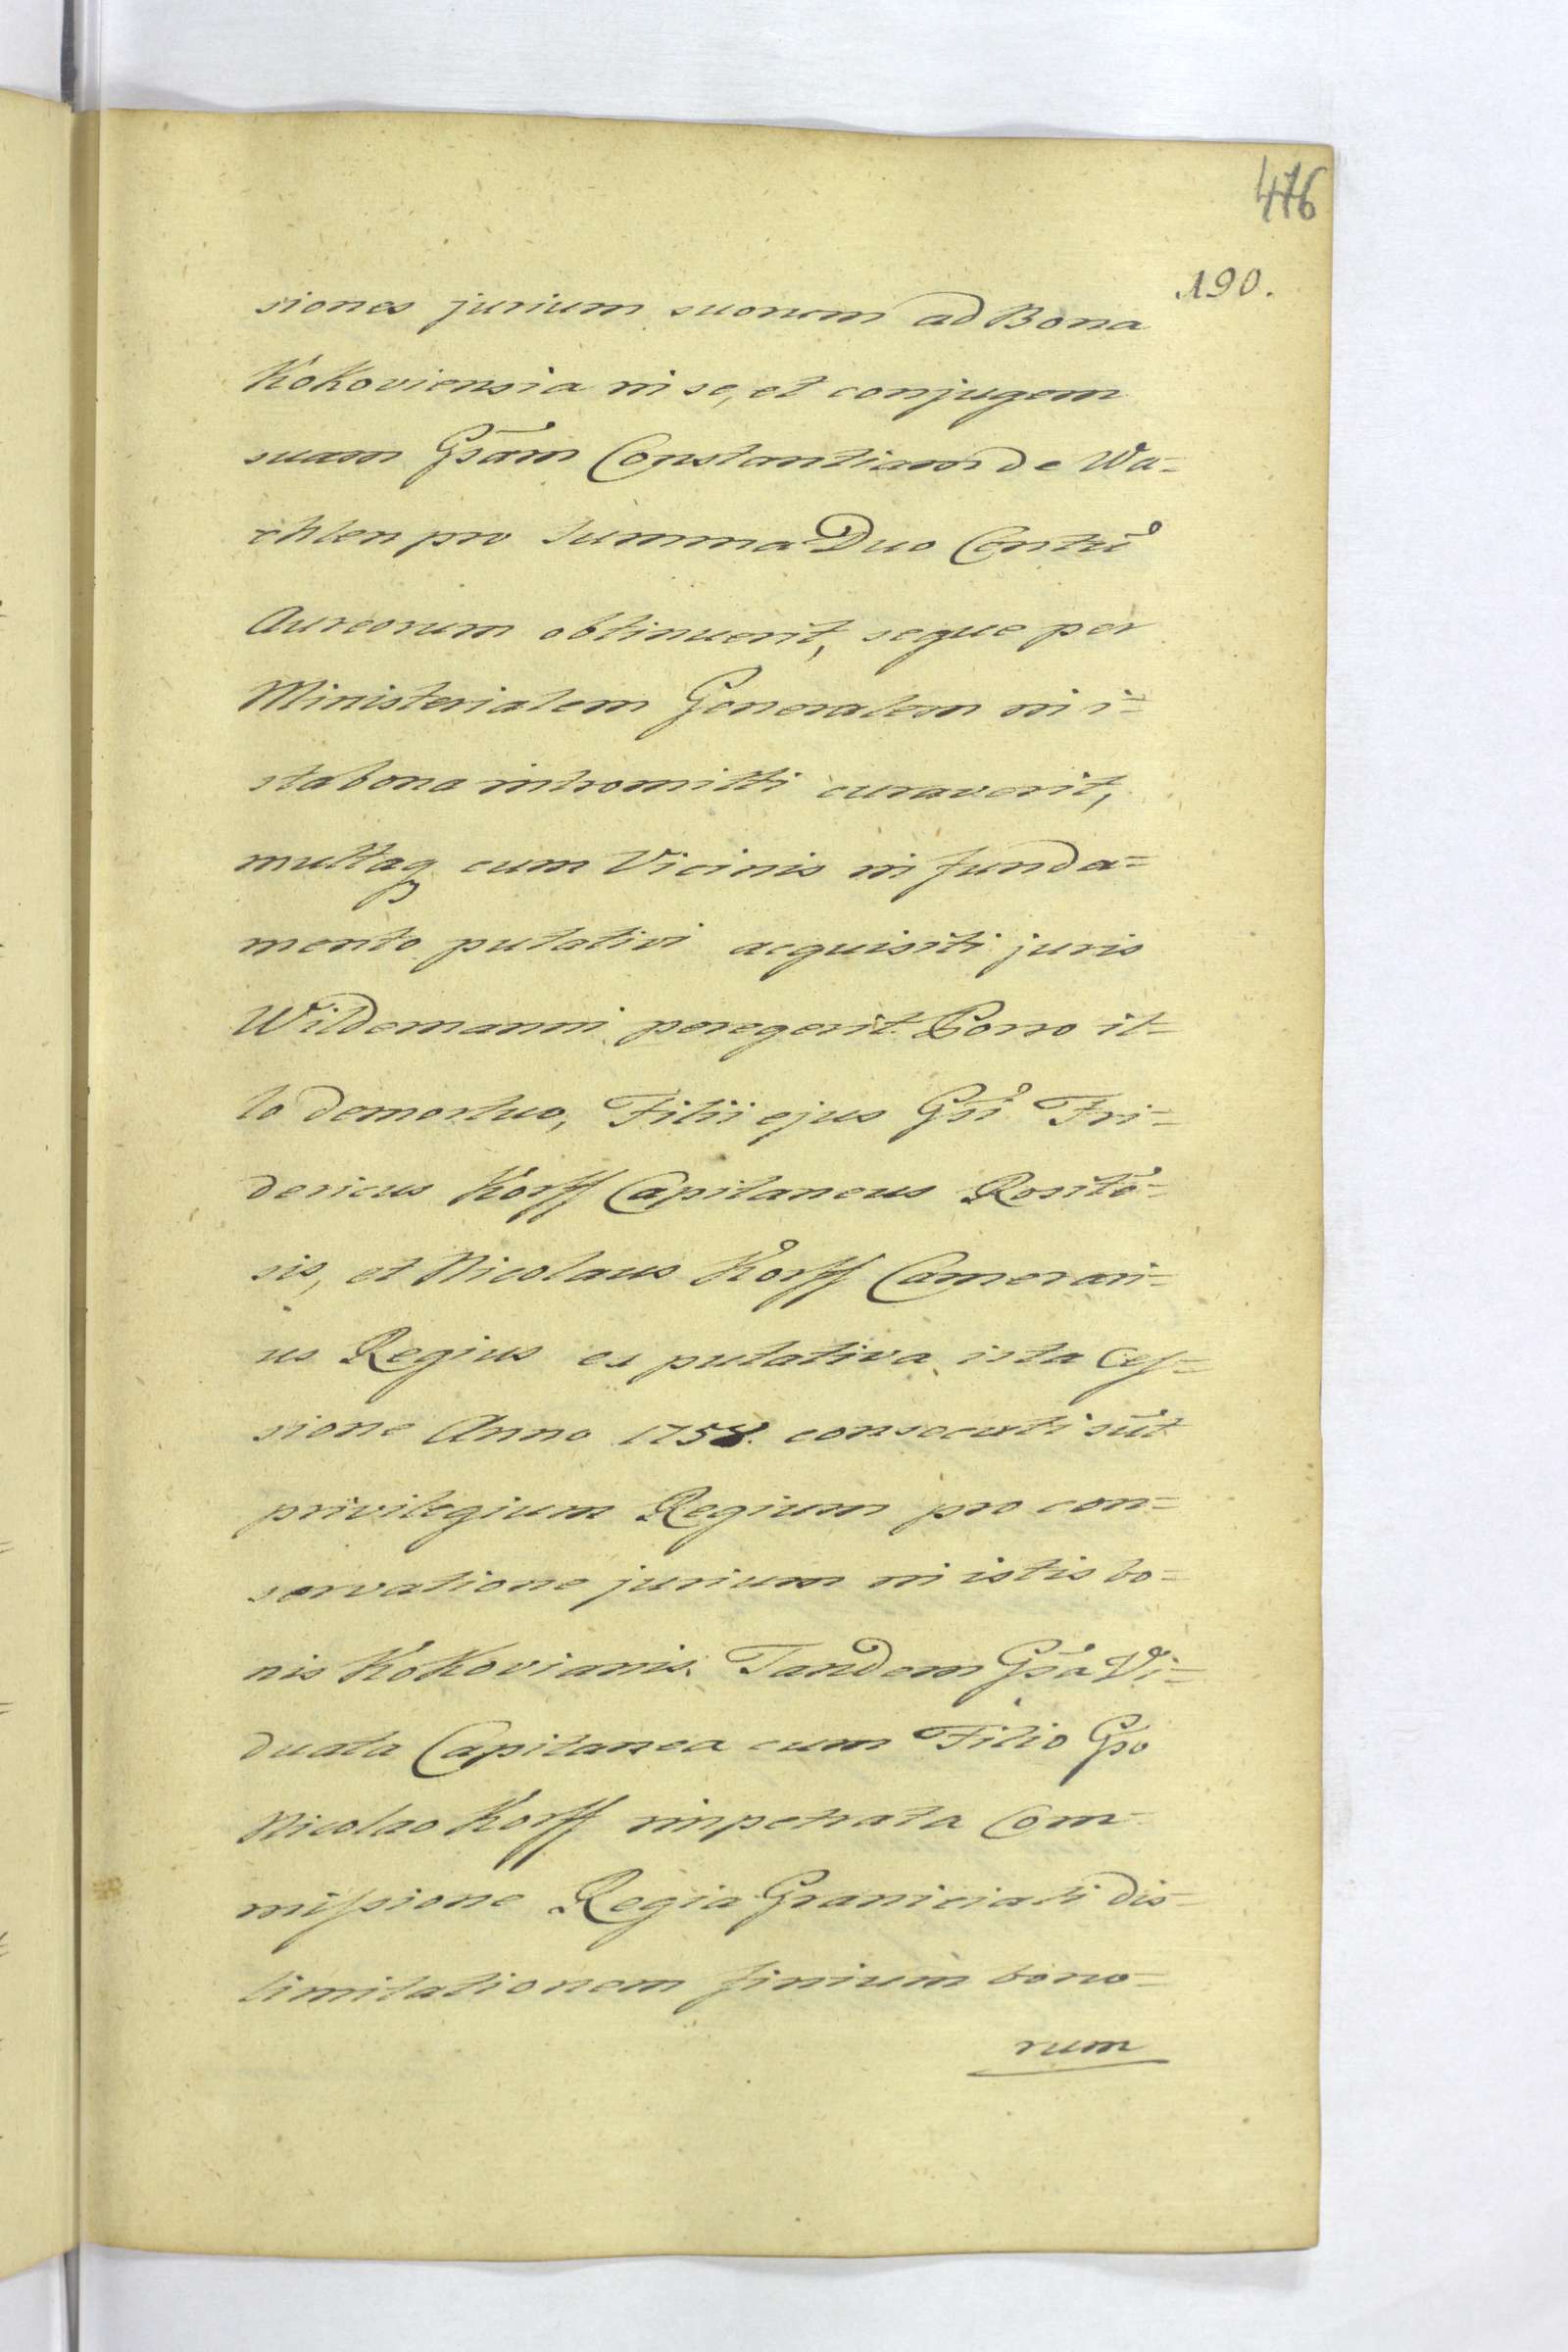 476
190.
siones jurium suorum ad Bona
Kokoviensia in se, et conjugem
suam Gsām Constantiam de Wa=
chlen pro summa Duo Centū
Aureorum obtinuerit, seque per
Ministerialem Generalem in i=
sta bona intromitti curaverit,
multaq cum Vicinis in funda=
mento putativi acquisiti juris
Wildemanni peregerit. Porro il=
lo demortuo, Filii ejus Gsi Fri=
dericus Korff Capitaneus Rositē=
sis, et Nicolaus Korff Camerari=
us Regius ex putativa ista Ces=
sione Anno 1758. consecuti sūt
privilegium Regium pro con=
servatione jurium in istis bo=
nis Kokovianis. Tandem Gsa Vi=
duata Capitanea cum Filio Gso
Nicolao Korff impetrata Com=
missione Regia Graniciali dis=
limitationem finium bono=
rum